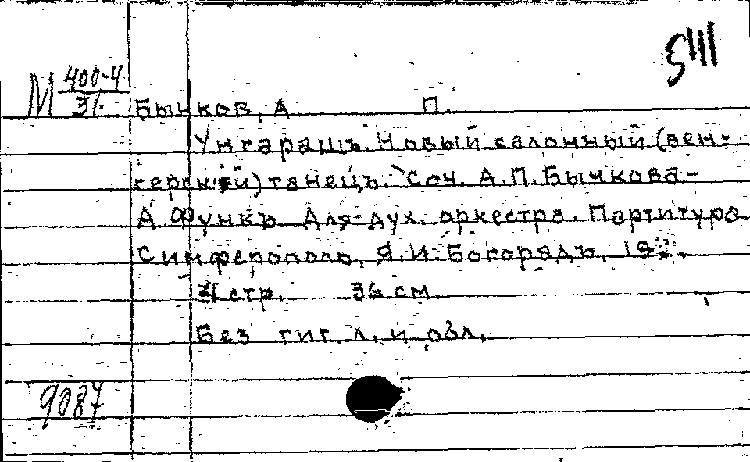 5411
М 400-4
31
Бычков, А П.
Унгарашъ. Новый салонный (вен-
герскій) танецъ. Соч. А.П. Бычкова-
А. Функъ. Для дух. оркестра. Партитура
Симферополь, Я.И. Богорадъ, 19
стр. 36 см
Без тит. л. и обл.
9087